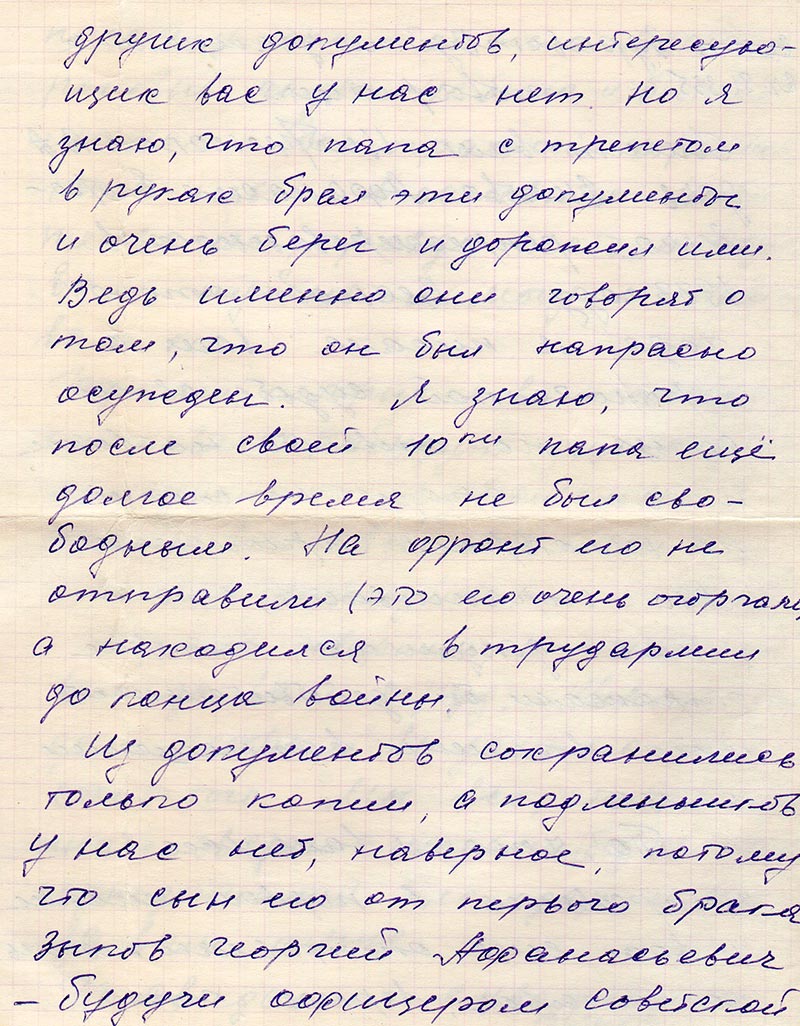 других документов, интересую-
щих вас у нас нет. Но я
знаю, что папа с трепетом
в руках брал эти документы
и очень берег и дорожил ими.
Ведь именно они говорят о
том, что он был напрасно
осужден. Я знаю, что
после своей 10ки папа ещё
долгое время не был сво-
бодным. На фронт его не
отправили (это его очень огорчало)
а находился в трудармии
до конца войны.
Из документов сохранились
только копии, а подлинников
у нас нет, наверное, потому
что сын его от первого брака
Зыков Георгий Афанасьевич
- будучи офицером советской